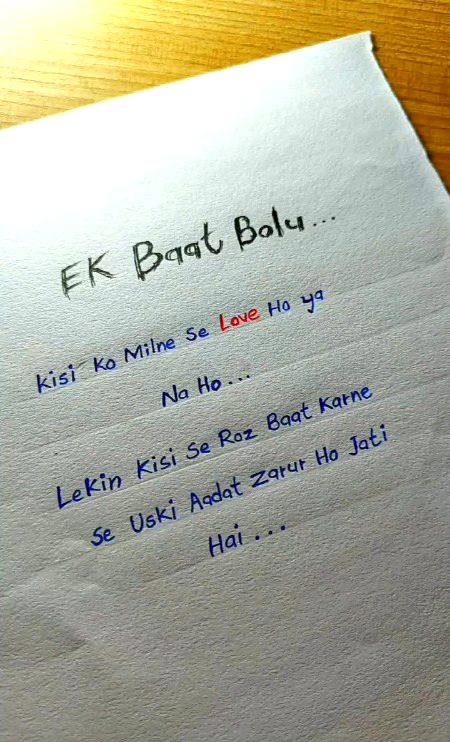 EK Baat Bolu...
Kisi Ko Milne Se Love Ho ya
Na Ho...
Lekin Kisi Se Roz Baat Karne
Se Uski Aadat Zarur Ho Jati
Hai...